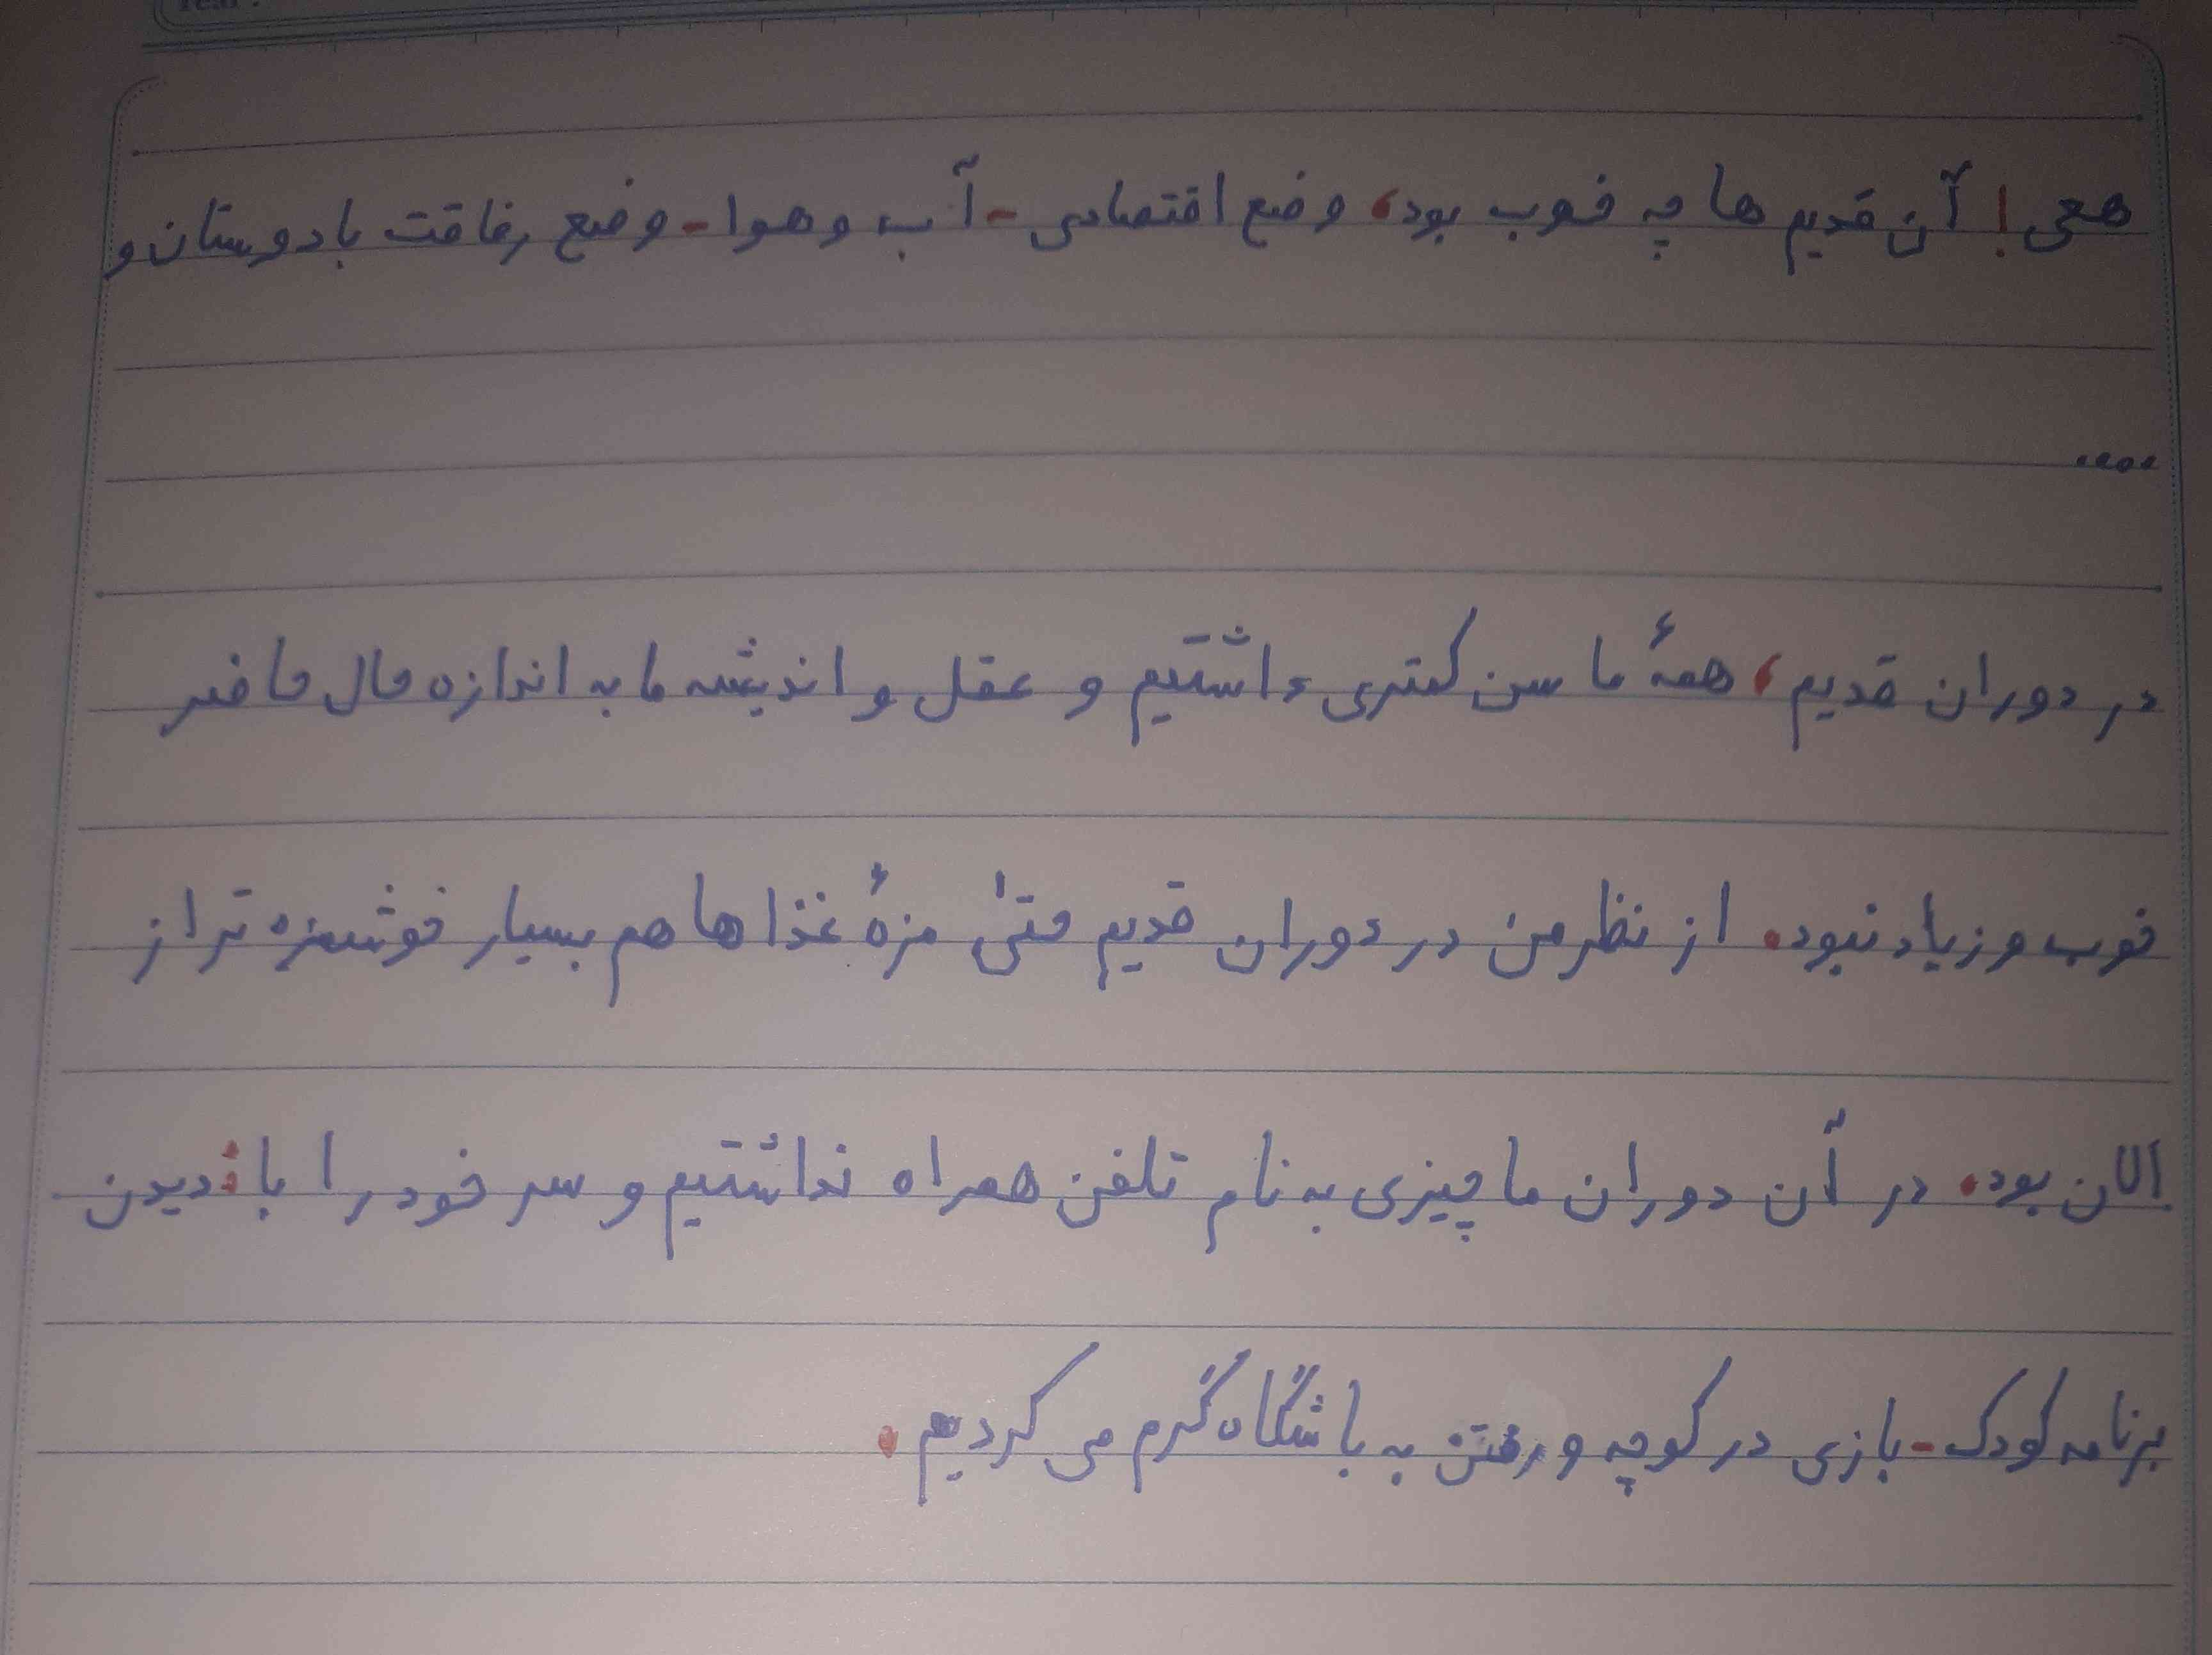 هعی! آن قدیم ها چه خوب بود، وضع اقتصادی - آب و هوا - وضع رفاقت با دوستان و
....
در دوران قدیم، همهٔ ما سن کمتری داشتیم و عقل و اندیشه ما به اندازه حال حاضر
خوب و زیاد نبود. از نظر من در دوران قدیم حتیٰ مزهٔ غذا ها هم بسیار خوشمزه تر از
الان بود. در آن دوران ما چیزی به نام تلفن همراه نداشتیم و سر خود را با: دیدن
برنامه کودک - بازی در کوچه و رفتن به باشگاه گرم می کردیم.